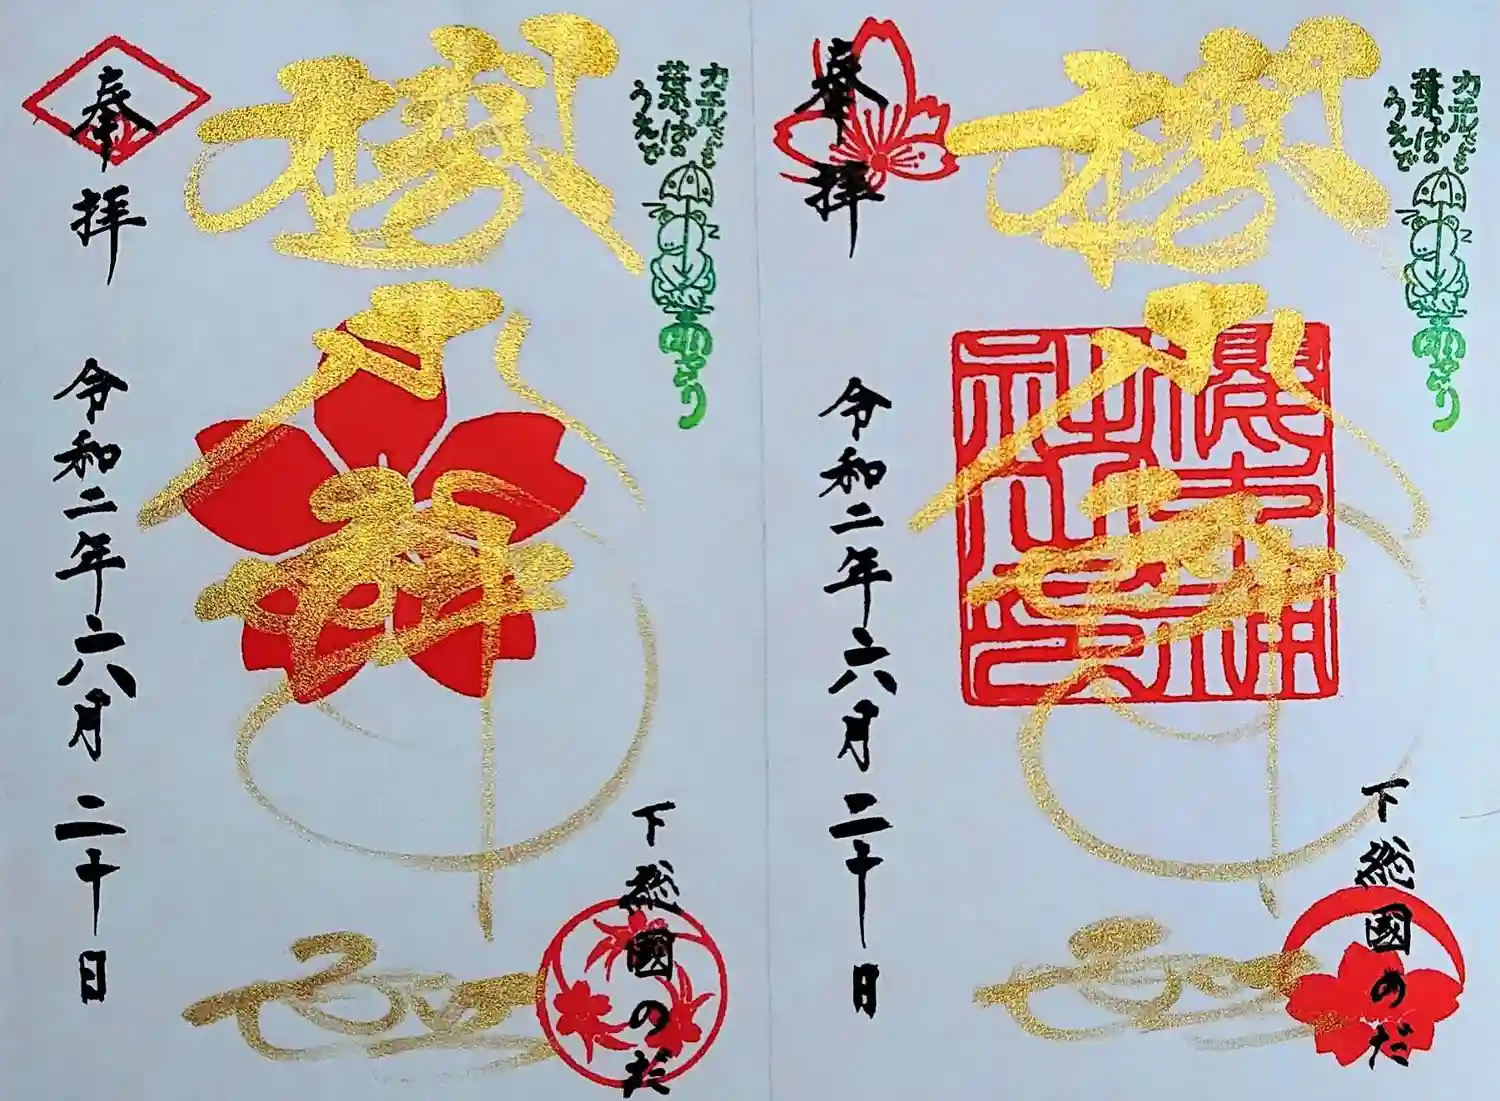 カエルさんも
葉っぱの
うえで
雨やどり
下総國のだ
櫻木神社
奉拝
令和二年六月二十日
カエルさんも
葉っぱの
うえで
雨やどり
下総國のだ
櫻木神社
奉拝
令和二年六月二十日